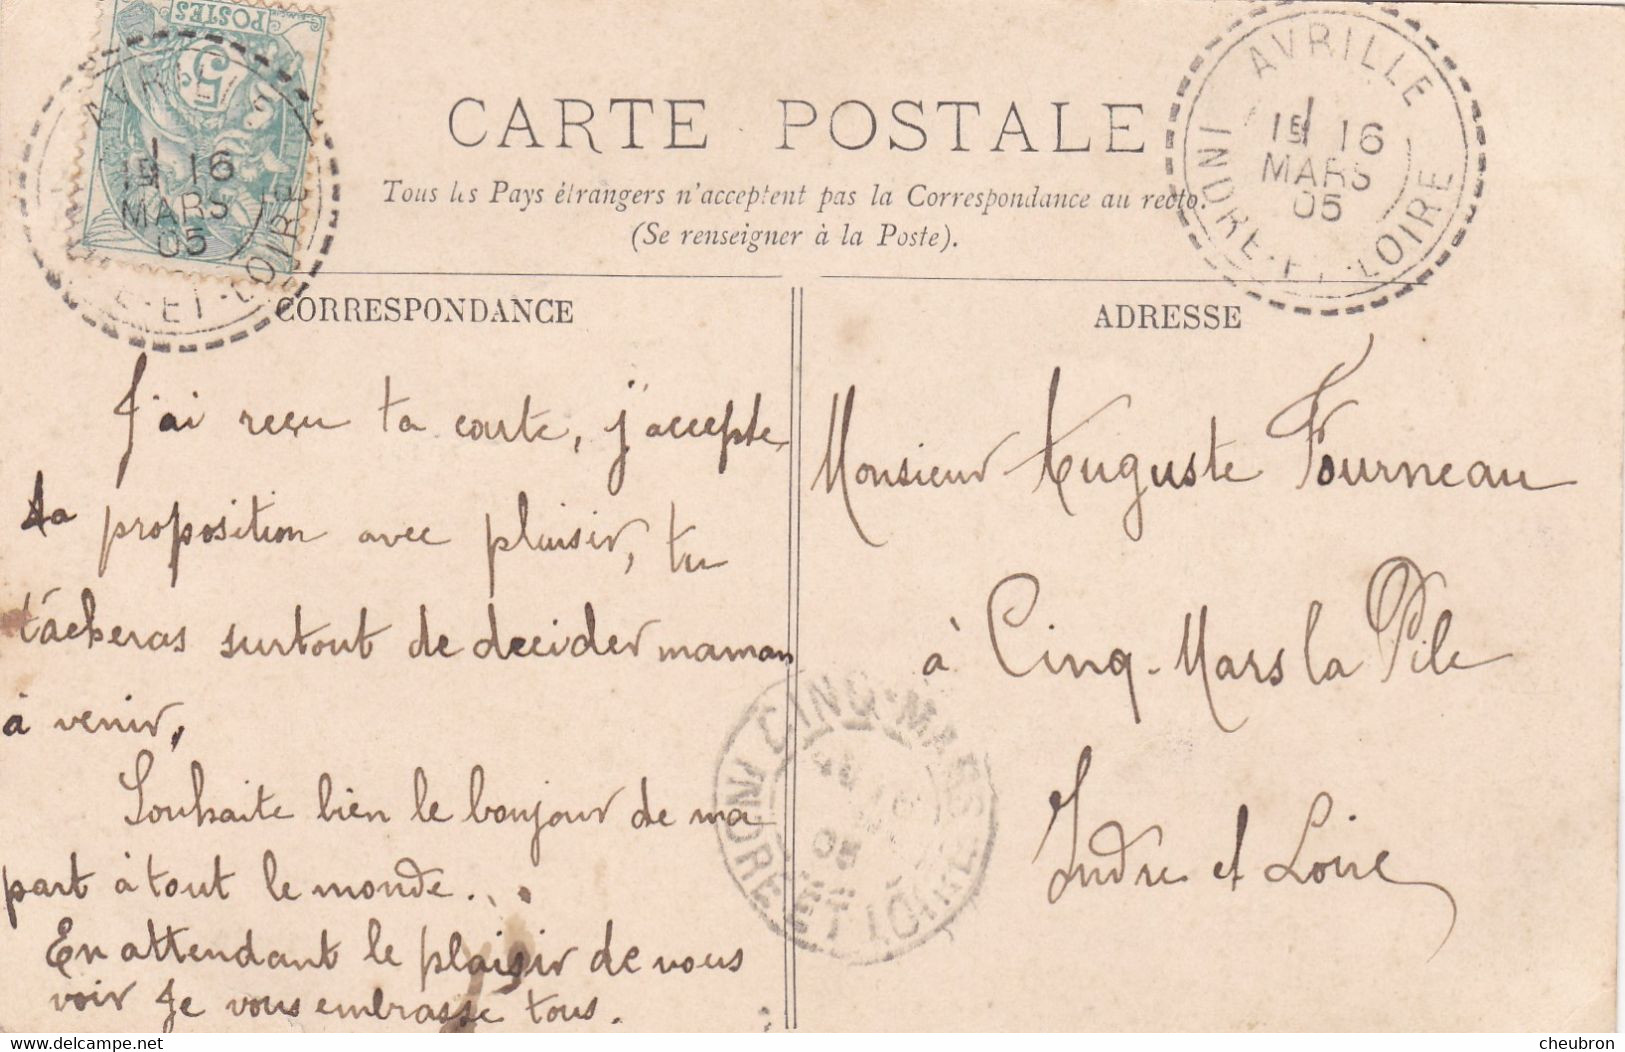 POSTES
5
AVRILLE
1E 16
MARS
05
E-ET-LOIRE
AVRILLE
1E 16
MARS
05
INDRE-ET-LOIRE
CARTE POSTALE
Tous les Pays étrangers n'acceptent pas la Correspondance au recto.
(Se renseigner à la Poste).
CORRESPONDANCE
J'ai reçu ta carte, j'accepte
ta proposition avec plaisir, tu
tâcheras surtout de decider maman
à venir,
Souhaite bien le bonjour de ma
part à tout le monde...
En attendant le plaisir de vous
voir Je vous embrasse tous.
ADRESSE
Monsieur Auguste Fourneau
à Cinq-Mars la Pile
Indre et Loire
CINQ-MARS
05
INDRE-ET-LOIRE
delcampe.net
cheubron